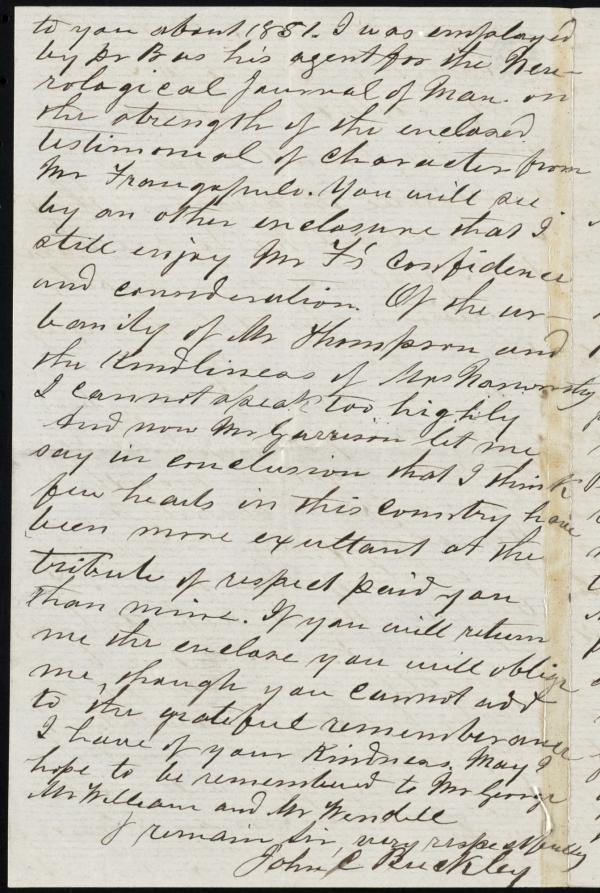 to you about 1851. I was employed
by Dr B as his agent for the Neu-
rological Journal of Man. on
the strength of the enclosed
testimonial of character from
Mr You will see
by an other enclosure that I
still enjoy Mr F's confidence
and consideration. Of the ur-
banity of Mr Thompson and
the kindliness of Mrs
I cannot speak too highly
And now Mr Garrison let me
say in conclusion that I think
few hearts in this country have
been more exultant at the
tribute of respect paid you
than mine. If you will return
me the enclose you will oblige
me, though you cannot add
to the grateful rememberance
I have of your kindness. May I
hope to be remembered to Mr George
Mr William and Mr Wendell
I remain Sir, very respectfully
John C Buckley